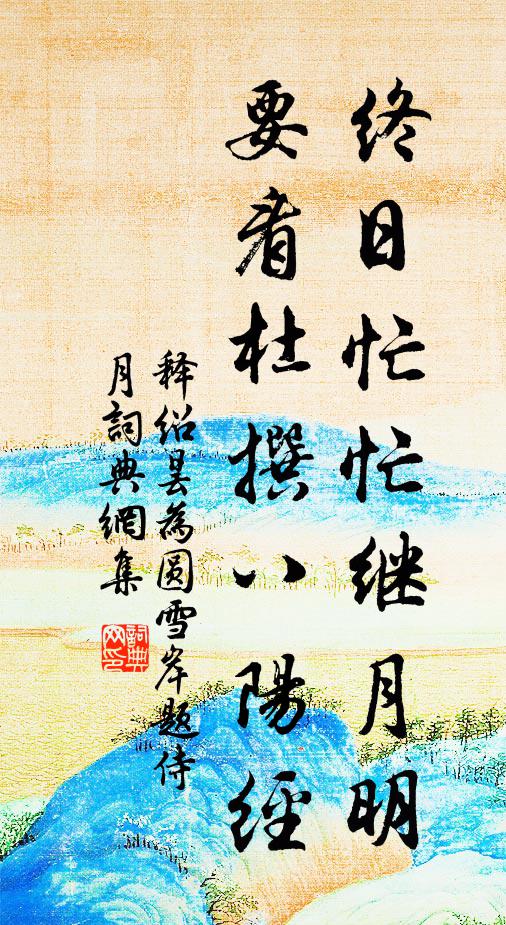 终日忙忙继月明
要看杜撰八陽經
释绍昙為圆雪岸题侍
月詞典網集
詞典
网印